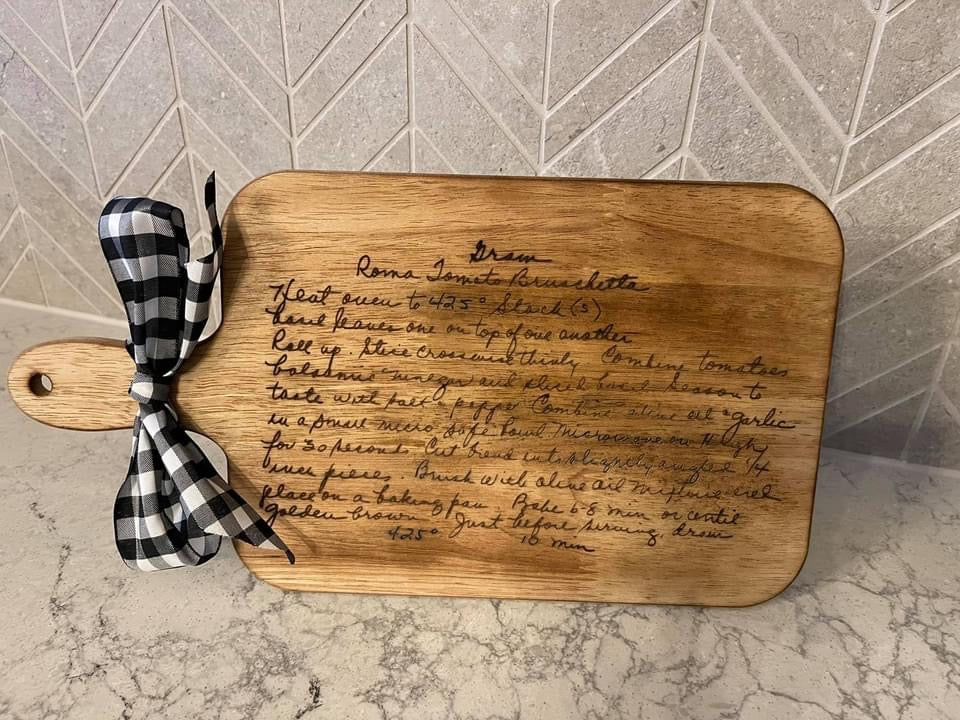 Gram
Roma Tomato Bruschetta
Heat oven to 425° Stack (s)
basil leaves one on top of one another
Roll up. Slice crosswise thinly Combine tomatoes
balsamic vinegar and sliced basil Season to
taste with salt & pepper Combine olive oil & garlic
in a small micro safe bowl. Microwave on High
for 30 seconds. Cut bread into slightly angled 1/4
inch pieces. Brush with olive oil mixture and
place on a baking pan Bake 6-8 min or until
golden brown. Just before serving, drain
425° 10 min